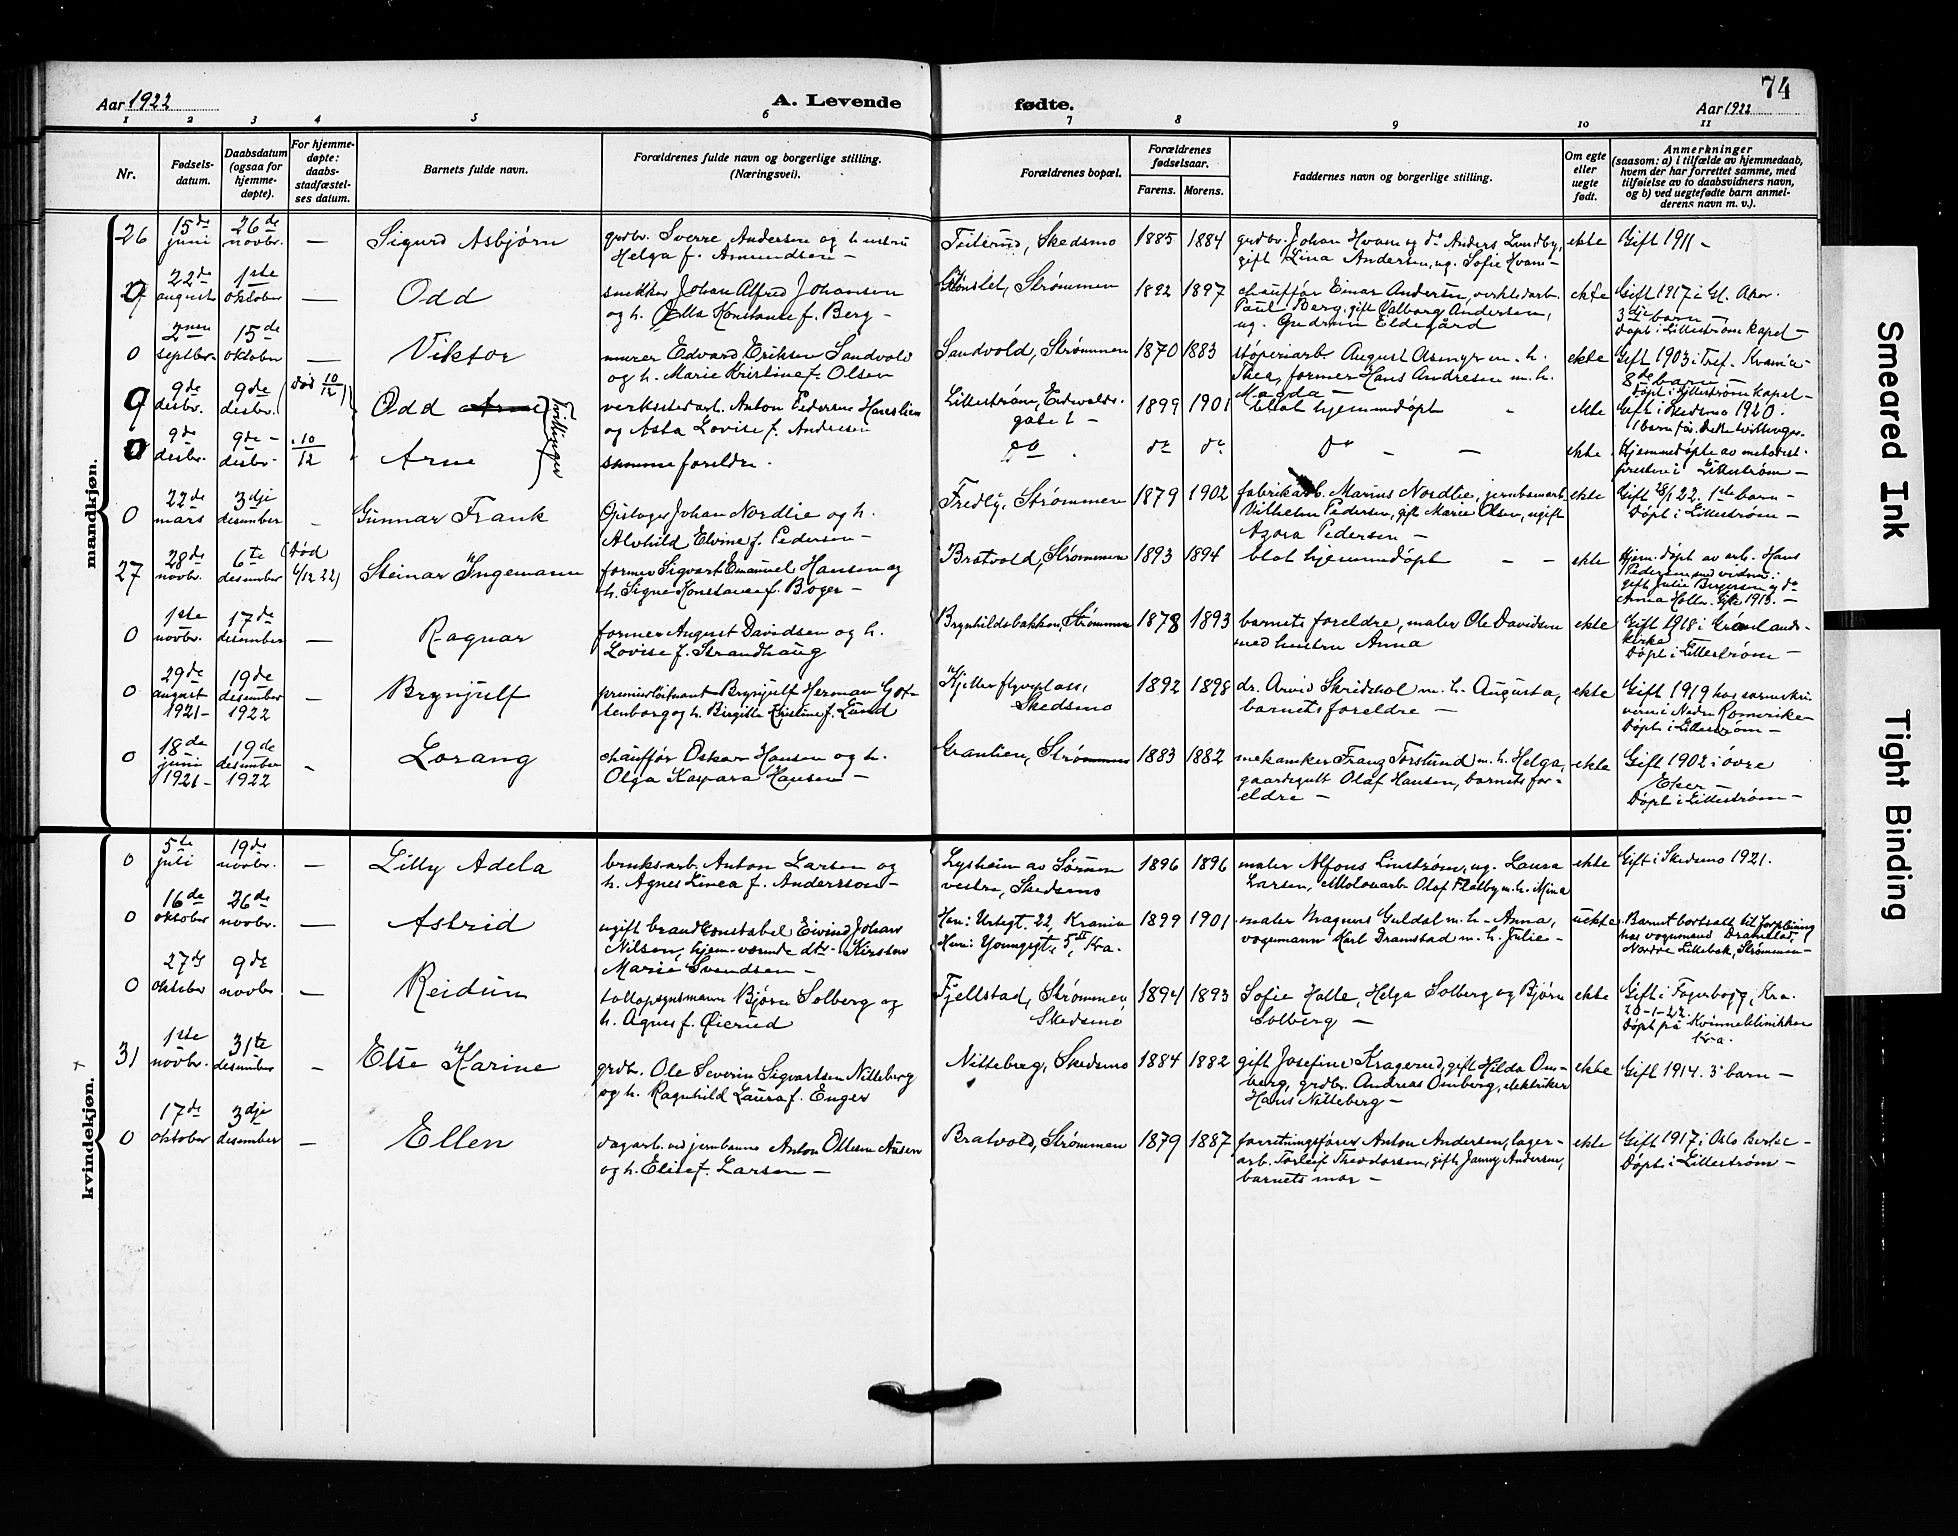 74
Aar 1922 A. Levende fødte. Aar 1922
1 2 3 4 5 6 7 8 9 10 11
Nr.
Fødsels-
datum.
Daabsdatum
(ogsaa for
hjemme-
døpte).
For hjemme-
døpte:
daabs-
stadfæstel-
ses datum.
Barnets fulde navn.
Forældrenes fulde navn og borgerlige stilling.
(Næringsvei).
Forældrenes bopæl.
Forældrenes
fødselsaar.
Farens. Morens.
Faddernes navn og borgerlige stilling.
Om egte
eller
uegte
født.
Anmerkninger
(saasom: a) i tilfælde av hjemmedaab,
hvem der har forrettet samme, med
tilføielse av to daabsvidners navn,
og b) ved uegtefødte barn anmel-
derens navn m. v.).
mandkjøn.
26
15de
juni
26de
novbr.
—
Sigurd Asbjørn
grdbr. Sverre Andersen og hustru
Helga f. Amundsen —
Teiterud, Skedsmo
1885 1884
grdbr. Johan Hvam og do Anders Lundby,
gift Lina Andersen, ug. Sofie Hvam —
ekte
Gift 1911 —
22de
august
1ste
oktober
—
Odd
snekker Johan Alfred Johansen
og h. Konstanse f. Berg —
Strømmen
1892 1897
chauffør Einar Andersen, verkstedarb.
Paul Berg, gift Valborg Andersen,
ug. Gudrun Eldegård
ekte
Gift 1917 i Gl. Aker.
3dje barn —
Døpt i Lillestrøm kapel —
0
2nen
septbr.
15de
oktober
—
Viktor
murer Edvard Eriksen Sandvold
og h. Marie Kristine f. Olsen
Sandvold, Strømmen
1870 1883
støperiarb. August m. h.
Thea, former Hans Andresen m. h.
Magda —
ekte
Gift 1903 i Tref. Krania —
8de barn —
Døpt i Lillestrøm kapel —
9de
desbr.
9de
desbr.
(død 10/12)
Odd Arne
Tvillinger
verkstedarb. Anton Pedersen Hanslien
og Asta Lovise f. Andresen
Lillestrøm,
gate 2 —
1899 1901
blot hjemmedøpt —
ekte
Gift i Skedsmo 1920.
1 barn før. Dette tvillinger.
0
9de
desbr.
9de —
desbr.
10/12
Arne
samme foreldre.
do
do do
do — —
ekte
Hjemmedøpte av metodist-
presten i Lillestrøm —
0
22de
mars
3dje
desember
—
Gunnar Frank
Opslager Johan Nordlie og h.
Alvhild Elvine f. Pedersen —
Fredly, Strømmen
1879 1902
fabrikarb. Marius Nordlie, jernbanearb.
Vilhelm Pedersen, gift Marie Olsen, ugift
Azora Pedersen —
ekte
Gift 28/1 22. 1ste barn —
Døpt i Lillestrøm —
27
28de
novbr.
6te
desember
(død
6/12 22)
Steinar Ingemann
former Sigvart Emanuel Hansen og
h. Signe Konstanse f. Boger —
Bratvold, Strømmen
1893 1894
blot hjemmedøpt — —
ekte
Hjem. døpt av arb. Hans
Pedersen vidner:
gift Julie Birgersen og do
Anna Holter. Gift 1915. —
0
1ste
novbr.
17de
desember
—
Ragnar
former August Davidsen og h.
Lovise f. Strandhaug
Brynhildsbakken, Strømmen
1878 1893
barnets foreldre, maler Ole Davidsen
med hustru Anna
ekte
Gift 1918 i Grønlands-
kirke
Døpt i Lillestrøm —
0
29de
august
1921 —
19de
desember
1922
—
Brynjulf
premierløitnant Brynjulf Herman Got-
tenborg og h. Birgitte Kristine f. Lund
Kjeller flyveplass,
Skedsmo
1892 1898
dr. Arvid Skridshol m. h. Augusta,
barnets foreldre —
ekte
Gift 1919 hos sorenskri-
veren i Nedre Romerike —
Døpt i Lillestrøm —
0
18de
juni
1921 —
19de
desember
1922
—
Lorang
chauffør Oskar Hansen og h.
Olga Kaspara Hansen —
Granlien, Strømmen
1883 1882
mekaniker Franz Torslund m. h. Helga,
gaardsgutt Olaf Hansen, barnets for-
eldre —
ekte
Gift 1902 i øvre
Eker —
Døpt i Lillestrøm —
kvindekjøn.
0
5te
juli
19de
novbr.
—
Lilly Adela
bruksarb. Anton Larsen og
h. Agnes Linea f. Andersson —
Lysheim av Sørum
vestre, Skedsmo
1896 1896
maler Alfons Linstrøm, ug. Laura
Larsen, Olaf Flatby m. h. Mina
ekte
Gift i Skedsmo 1921.
0
16de
oktober
26de
novbr.
—
Astrid
ugift brandkonstabel Eivind Johan
Nilsen, hjem-værende dtr. Kirsten
Marie Svendsen —
Han: Urtegt. 22, Krania
Hun: Youngsgt. 5 II Kra.
1899 1901
maler Magnus Guldal m. h. Anna,
vognmann Karl Dramstad m. h. Julie —
uekte
Barnet bortsatt til forpleining
hos vognmand Dramstad,
Nordre Lillebæk, Strømmen —
0
27de
oktober
9de
novbr
—
Reidun
toldopsynsmann Bjørn Solberg og
h. Agnes f. Øierud
Fjellstad, Strømmen,
Skedsmo
1894 1893
Sofie Halle, Helga Solberg og Bjørn
Solberg —
ekte
Gift i Fagerborg, Kra.
20-1-22.
Døpt på Kvinneklinikken
Kra.
31
1ste
novbr.
31te
desember
—
Else Karine
grdbr. Ole Severin Sigvartsen Nitteberg
og h. Ragnhild Laura f. Enger
Nitteberg, Skedsmo
1884 1882
gift Josefine Kragerud, gift Hilda Om-
berg, grdbr. Andreas Omberg, elektriker
Hans Nitteberg —
ekte
Gift 1914. 3' barn —
0
17de
oktober
3dje
desember
—
Ellen
dagarb. ved jernbanen Anton Ottesen Ausen
og h. Elise f. Larsen —
Bratvold, Strømmen
1879 1887
forretningsfører Anton Andersen, lager-
arb. Torleif Theodorsen, gift Jenny Andersen,
barnets mor —
ekte
Gift 1917 i Oslo kirke —
Døpt i Lillestrøm —
Smeared Ink
Tight Binding